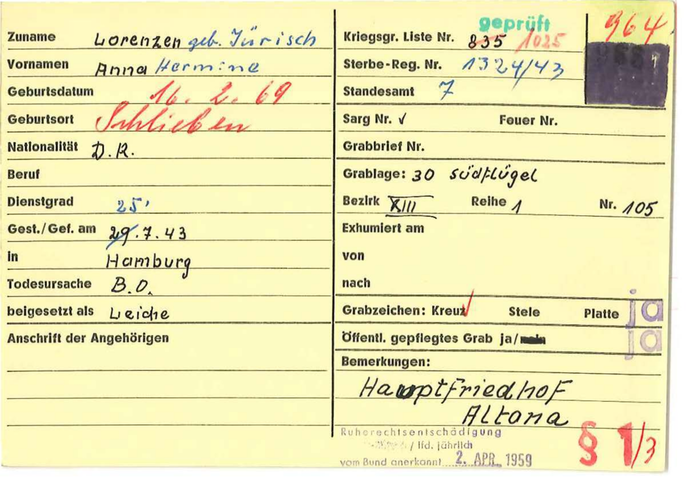 Zuname Lorenzen geb. Jürisch
Vornamen Anna Hermine
Geburtsdatum 16. 2. 69
Geburtsort Schlieben
Nationalität D.R.
Beruf
Dienstgrad 25'
Gest./Gef. am 29.7.43
in Hamburg
Todesursache B.O.
beigesetzt als Leiche
Anschrift der Angehörigen
geprüft
964
Kriegsgr. Liste Nr. 835 1025
Sterbe-Reg. Nr. 1324/43
Standesamt 7
Sarg Nr. ✓ Feuer Nr.
Grabbrief Nr.
Grablage: 30 Südflügel
Bezirk XIII Reihe 1 Nr. 105
Exhumiert am
von
nach
Grabzeichen: Kreuz Stele Platte ja
Öffentl. gepflegtes Grab ja/nein ja
Bemerkungen:
Hauptfriedhof
Altona
Ruherechtsentschädigung
/ lfd. jährlich
vom Bund anerkannt 2. APR. 1959
§ 1/3